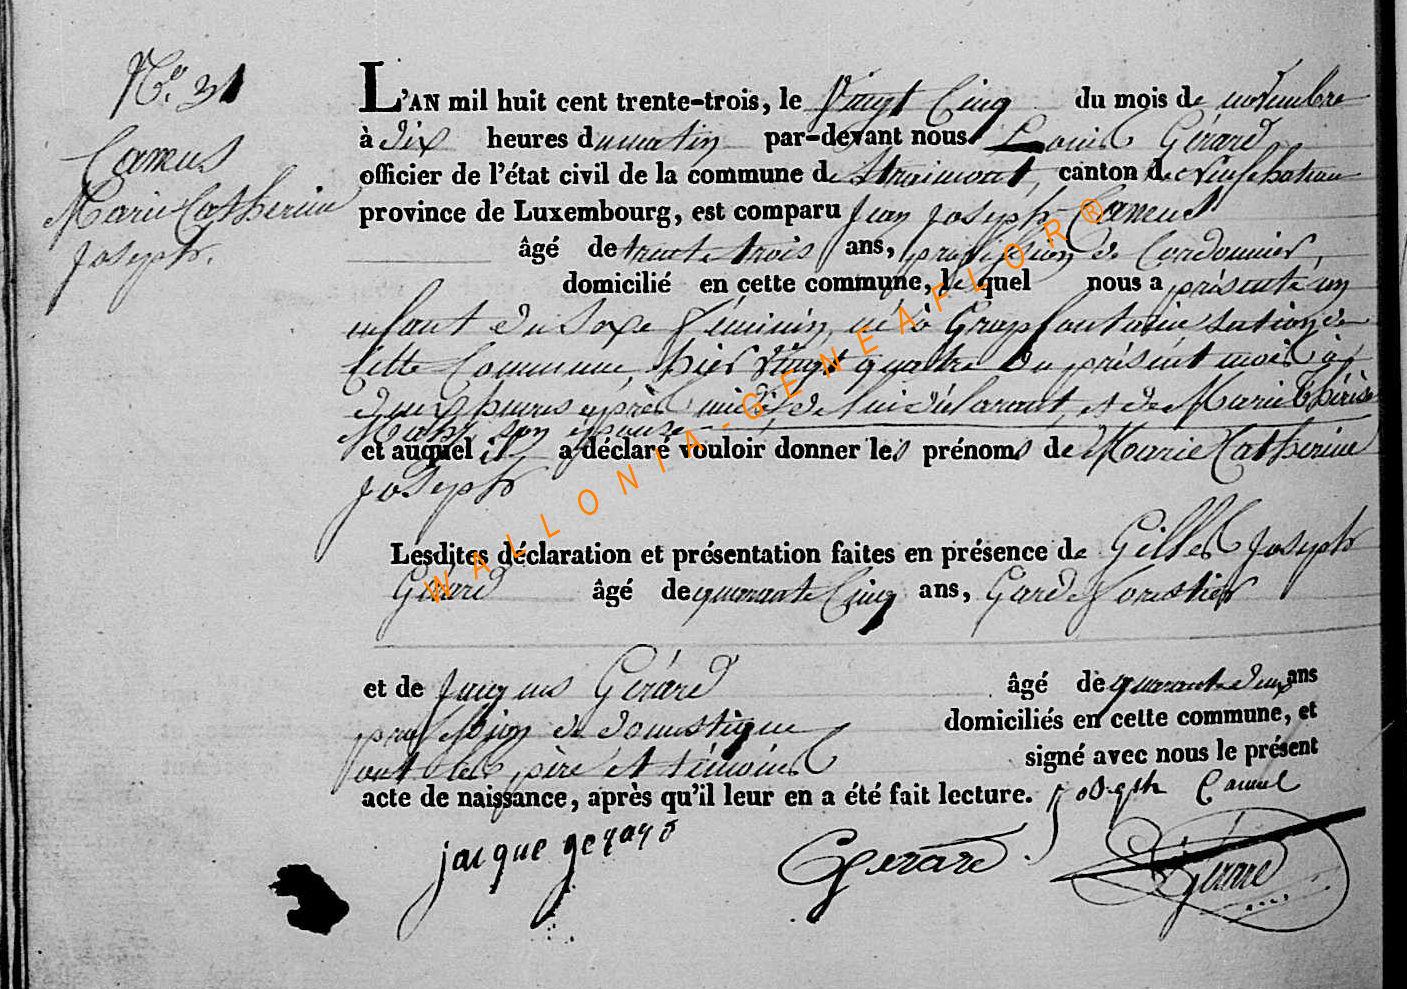 N.º 31
Camus
Marie Catherine
Joseph.
L'AN mil huit cent trente-trois, le Vingt Cinq du mois de novembre
à dix heures du matin par-devant nous Louis Gérard
officier de l'état civil de la commune de Straimont, canton de Neufchateau
province de Luxembourg, est comparu Jean Joseph Camus
âgé de trente trois ans, profession de Cordonnier,
domicilié en cette commune, lequel nous a présenté un
enfant du Sexe féminin, né à Grapfontaine section de
Cette Commune hier Vingt quatre du présent mois à
deux heures après midi de lui déclarant et de Marie Thérèse
son épouse
et auquel il a déclaré vouloir donner les prénoms de Marie Catherine
Joseph
Lesdites déclaration et présentation faites en présence de Gilles Joseph
Gérard âgé de quarante Cinq ans, Garde forestier
et de Jacques Gérard âgé de quarante deux ans
profession de domestique domiciliés en cette commune, et
ont les père et témoins signé avec nous le présent
acte de naissance, après qu'il leur en a été fait lecture. Joseph Camus
jacque gerard Gerard L Gerard
WALLONIA-GENEAFLOR®